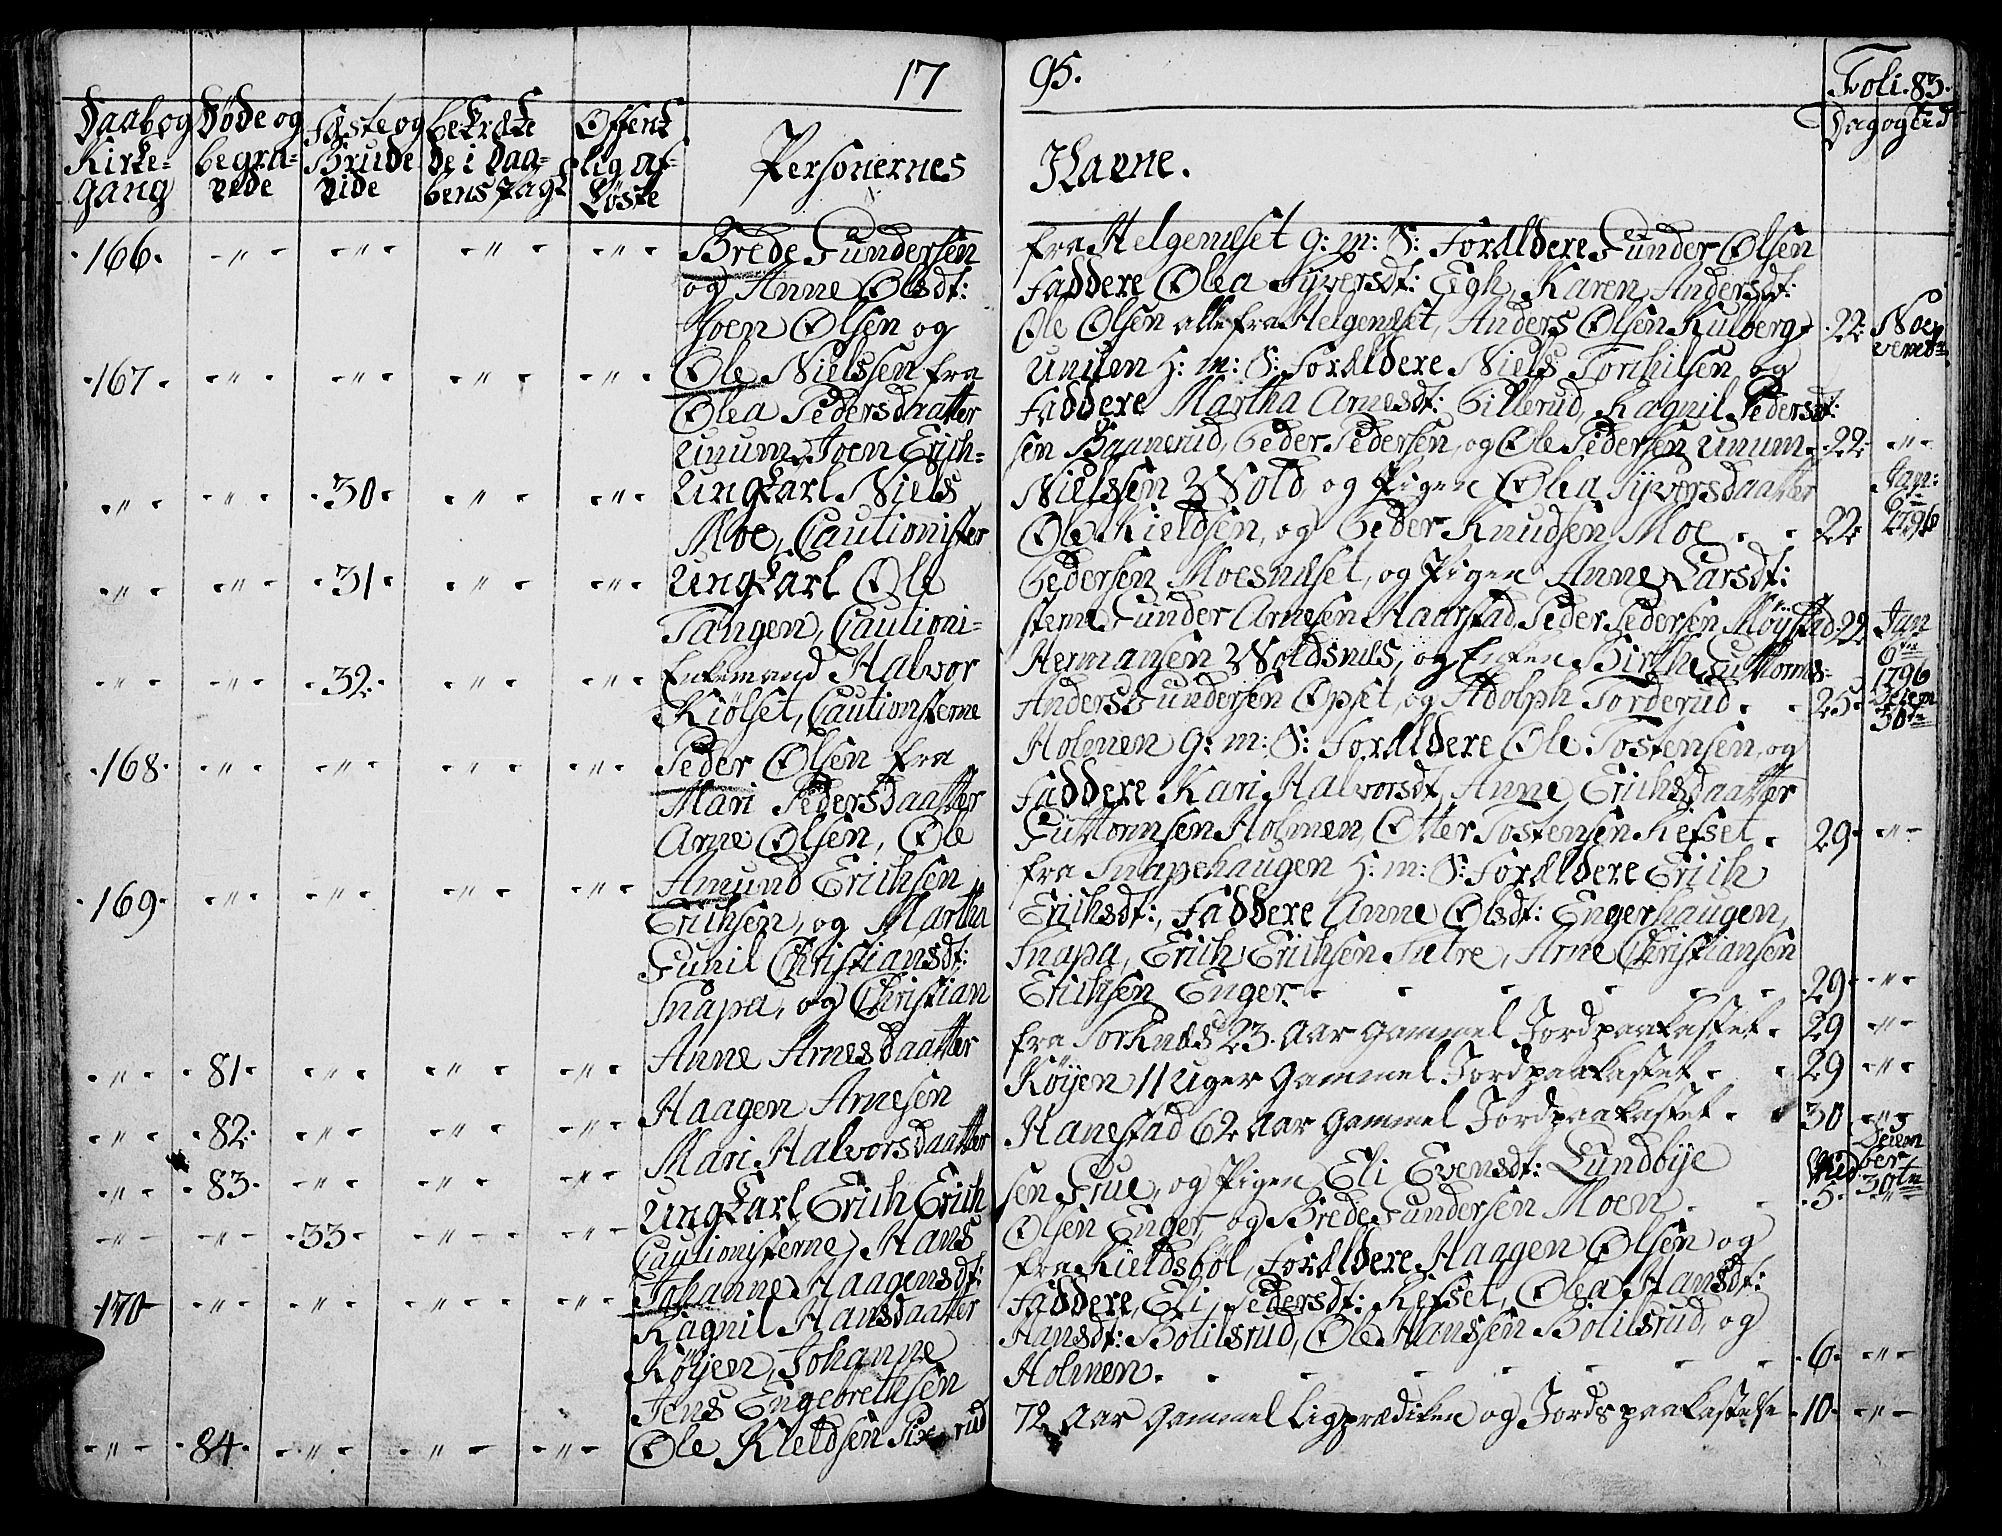 17 95. Foli. 83.
Daab og Kirke= gang
Døde og begra= vede
Fæste og Brude vide
bekræfte de i Daa= bens pagt
Offent lig af= Løste
Personernes Navne.
Dag og tid
166. Brede Gundersen fra Helgenæset g: m: S: Forældere Gunder Olsen
og Anne Olsdt: Faddere Olea Syversdt: Egh, Karen Andersdt:
Joen Olsen og Ole Olsen alle fra Helgenæset, Anders Olsen Kulberg 22 Novem
167. Ole Nielssen fra Unum H: m: S: Forældere Niels Torkilsen og
Olea Pedersdaatter Faddere Martha Arnesdt: Gillerud, Ragnil Pedersdt:
Unum, Joen Erich= sen Baanerud, Peder Pedersen, og Ole Pedersen Unum 22 "
30 Ungkarl Niels Nielssen Wold og Pigen Olea Syversdaatter Jan:
Moe, Cautionister Ole Kieldsen, og Peder Knudsen Moe 22 1796
31 Ungkarl Ole Pedersen Moesnæset, og Pigen Anne Larsdt:
Tangen, Cautioni= sterne Gunder Arnesen Haarstad, Peder Pedersen Møystad 22 Jan
32 Enkemand Halvor Hermansen Woldsnæs, og Enken Birthe Guttorms= 1796
Kiølset, Cautionisterne Anders Gundersen Opset, og Adolph Torderud 25 Decem 30te
168. Peder Olsen fra Holmen g: m: S: Forældere Ole Tostensen, og
Mari Pedersdaatter Faddere Kari Halvorsdt, Anne Erichsdaatter
Arne Olsen, Ole Guttormsen Holmen, Otter Tostensen Refset 29 "
169. Amund Erichsen fra Snapehaugen H: m: S: Forældere Erich
Erichsen, og Martha Erichsdt:, Faddere Anne Olsdt: Engerhaugen,
Gunil Christiansdt: Snapa, Erich Erichsen Sætre, Arne Christiansen
Snapa, og Christian Erichsen Enger 29 "
81 Anne Arnesdaatter fra Torknæs 23 Aar gammel Jordpaakastet 29 "
82 Haagen Arnesen Røyen 11 Uger gammel Jordpaakastet 29 "
83 Mari Halvorsdaatter Hanestad 62 Aar gammel Jordpaakastet 30 "
33 Ungkarl Erich Erich sen Grue, og Pigen Eli Evensdt: Lundbye Decem ber
Cautionisterne, Hans Olsen Enger, og Brede Gundersen Moen 5 30te
170 Johanne Haagensdt: fra Kieldsbøl, Forældere Haagen Olsen og
Ragnil Hansdaatter Faddere, Eli Pedersdt: Refset, Olea Hansdt:
Røyen, Johanne Hansdt: Botilsrud, Ole Hanssen Botilsrud, og
Jens Engebrethsen Holmen 6 "
84 Ole Kieldsen 72 Aar gammel Ligprædiken og Jords paakastelse 10 "